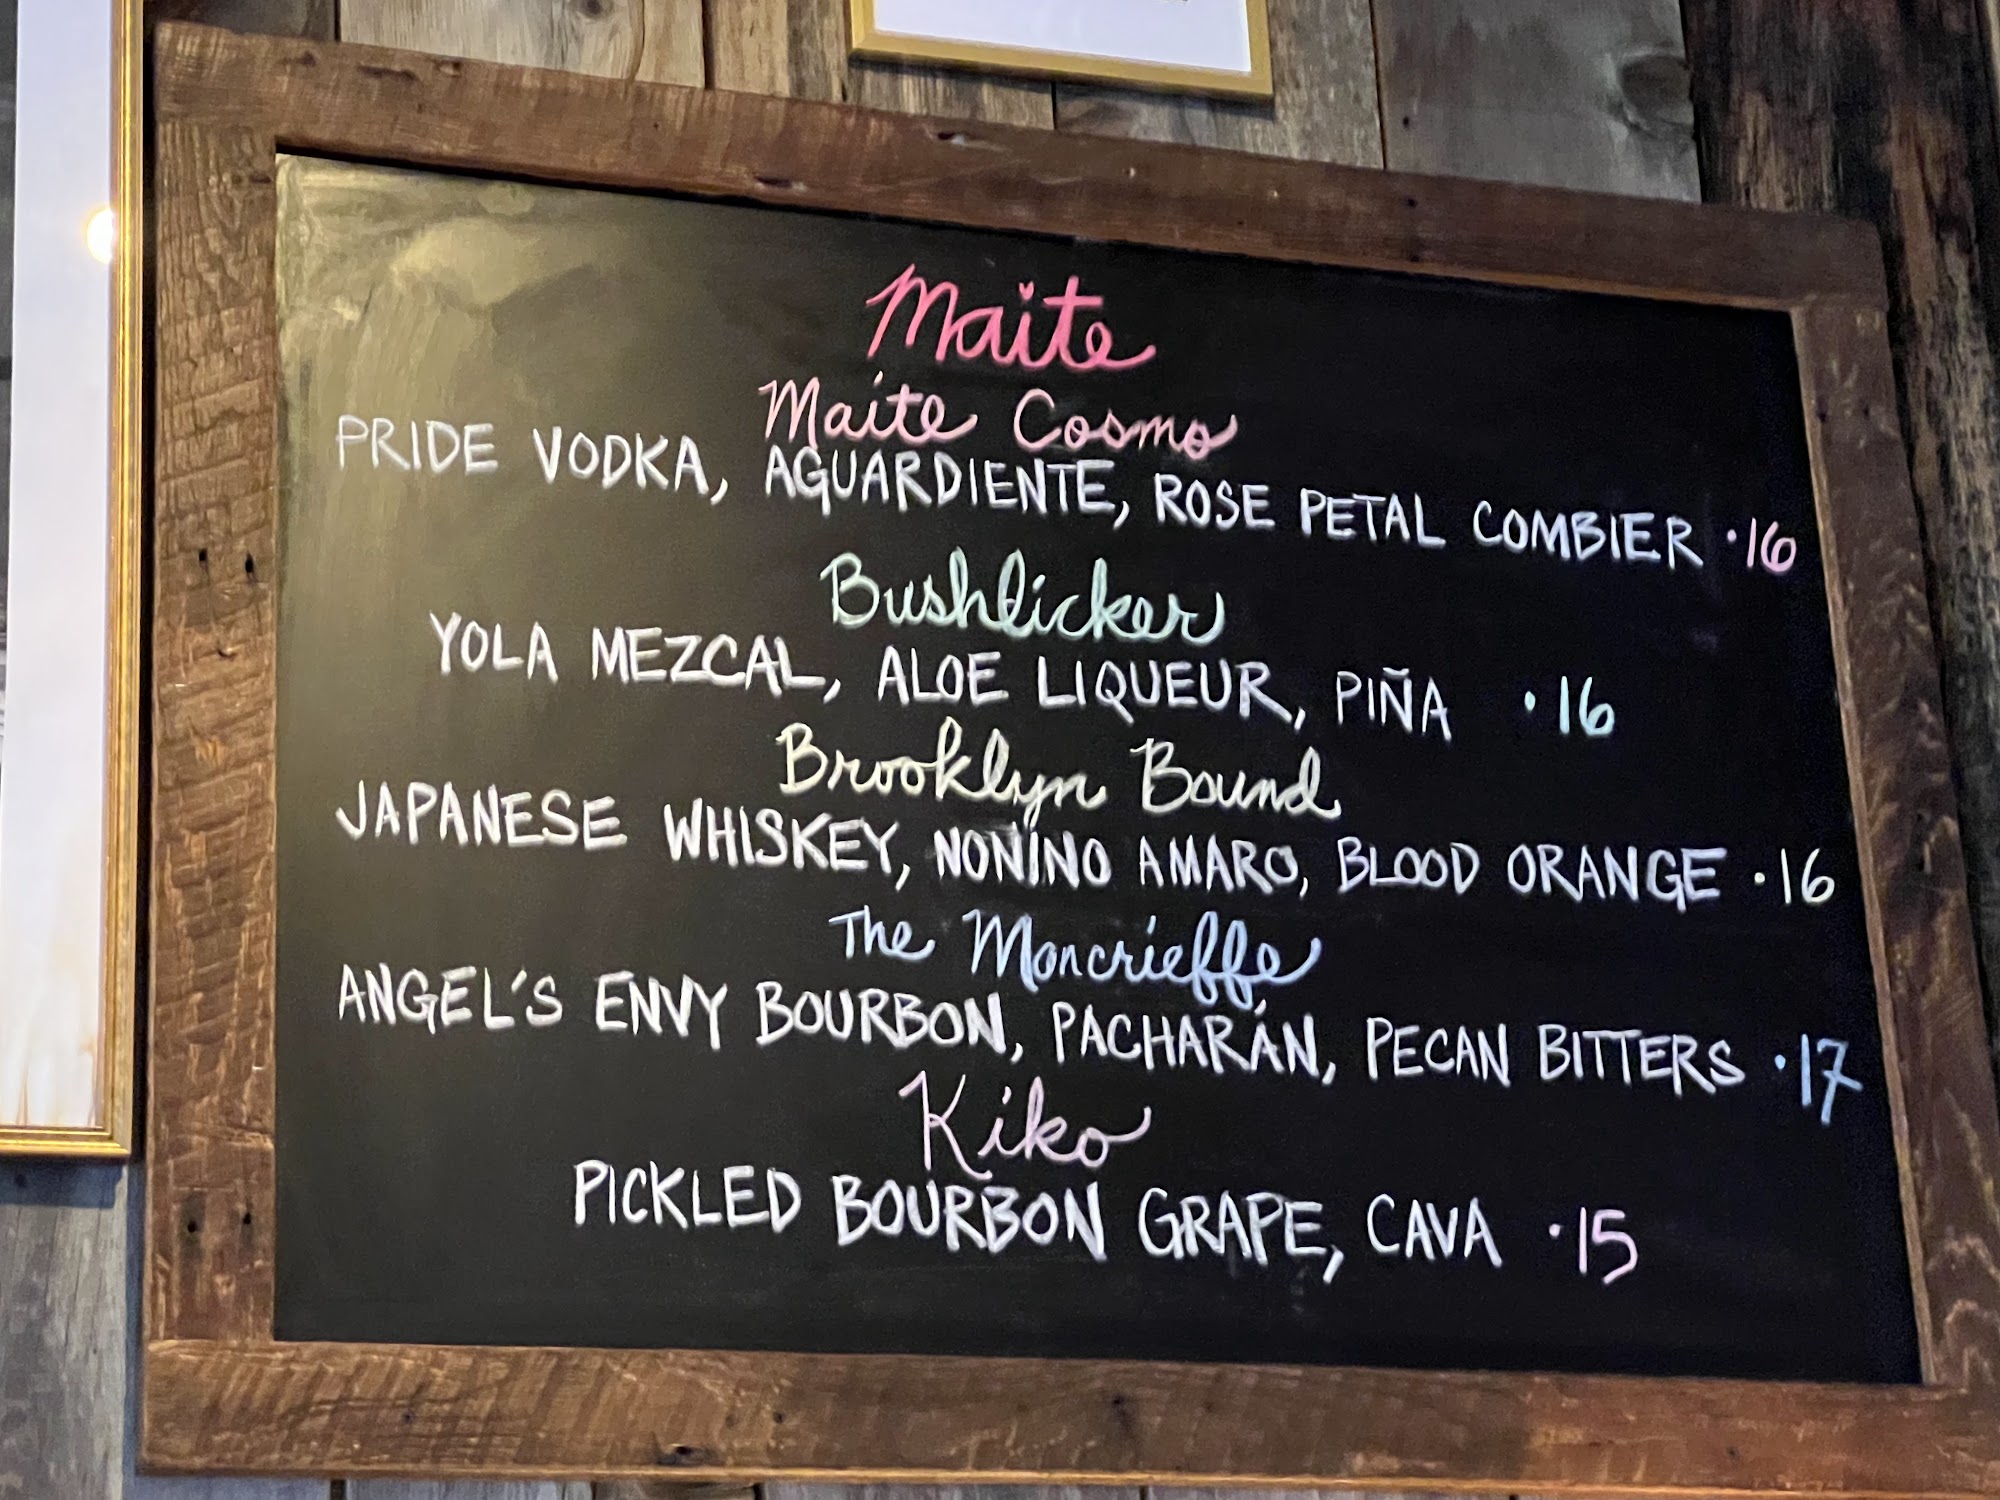 Maite
Maite Cosmo
PRIDE VODKA, AGUARDIENTE, ROSE PETAL COMBIER • 16
Bushlicker
YOLA MEZCAL, ALOE LIQUEUR, PIÑA • 16
Brooklyn Bound
JAPANESE WHISKEY, NONINO AMARO, BLOOD ORANGE • 16
The Moncrieffe
ANGEL'S ENVY BOURBON, PACHARÁN, PECAN BITTERS • 17
Kiko
PICKLED BOURBON GRAPE, CAVA • 15